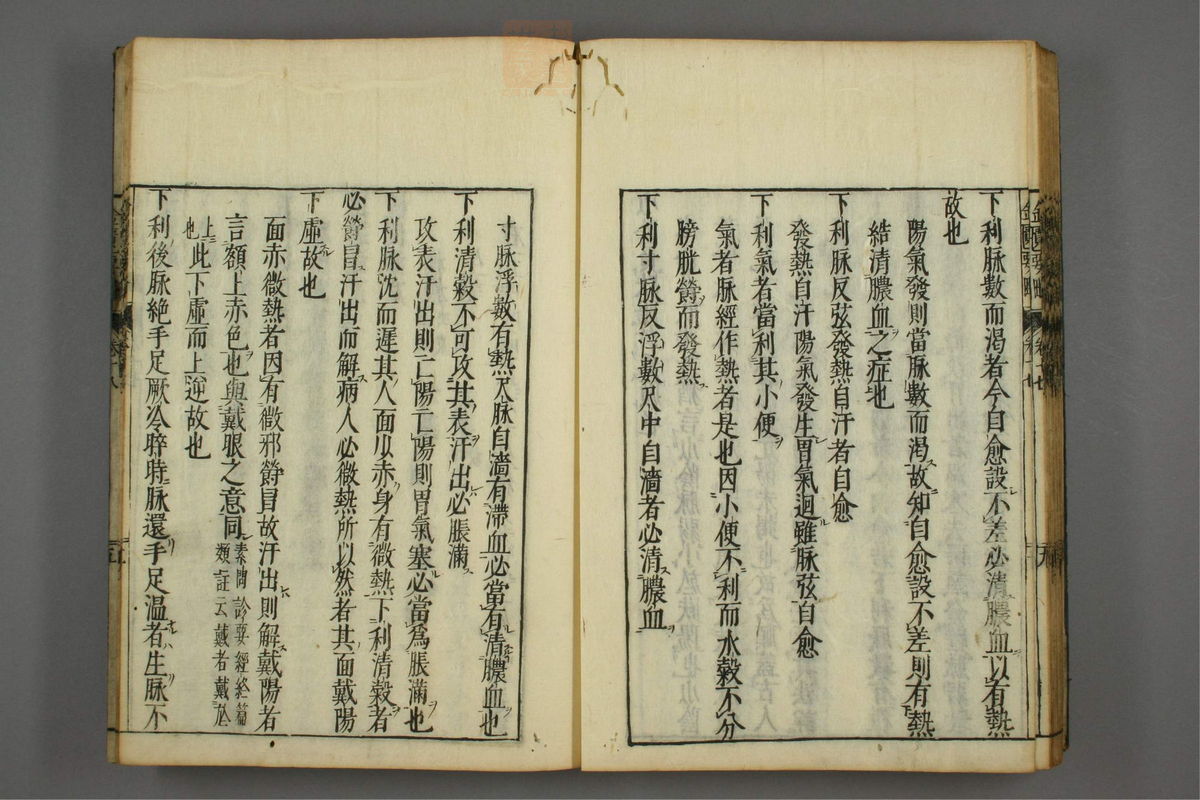 下利脉數而渴者今自愈設不差必清膿血以有熱
故也
陽氣發則當脉數而渴故知自愈設不差則有熱
結清膿血之症也
下利脉反弦發熱自汗者自愈
發熱自汗陽氣發生胃氣迴雖脉弦自愈
下利氣者當利其小便
氣者脉經作熱者是也因小便不利而水穀不分
膀胱欝而發熱
下利寸脉反浮數尺中自濇者必清膿血
寸脉浮數有熱尺脉自濇有滯血必當有清膿血也
下利清穀不可攻其表汗出必脹滿
攻表汗出則亡陽亡陽則胃氣塞必當爲脹滿也
下利脉沈而遲其人面以赤身有微熱下利清穀者
必欝冒汗出而解病人必微熱所以然者其面戴陽
下虛故也
面赤微熱者因有微邪欝冒故汗出則解戴陽者
言額上赤色也與戴眼之意同素問診要經終篇類註云戴者戴於
上也此下虛而上逆故也
下利後脉絶手足厥冷晬時脉還手足温者生脉不